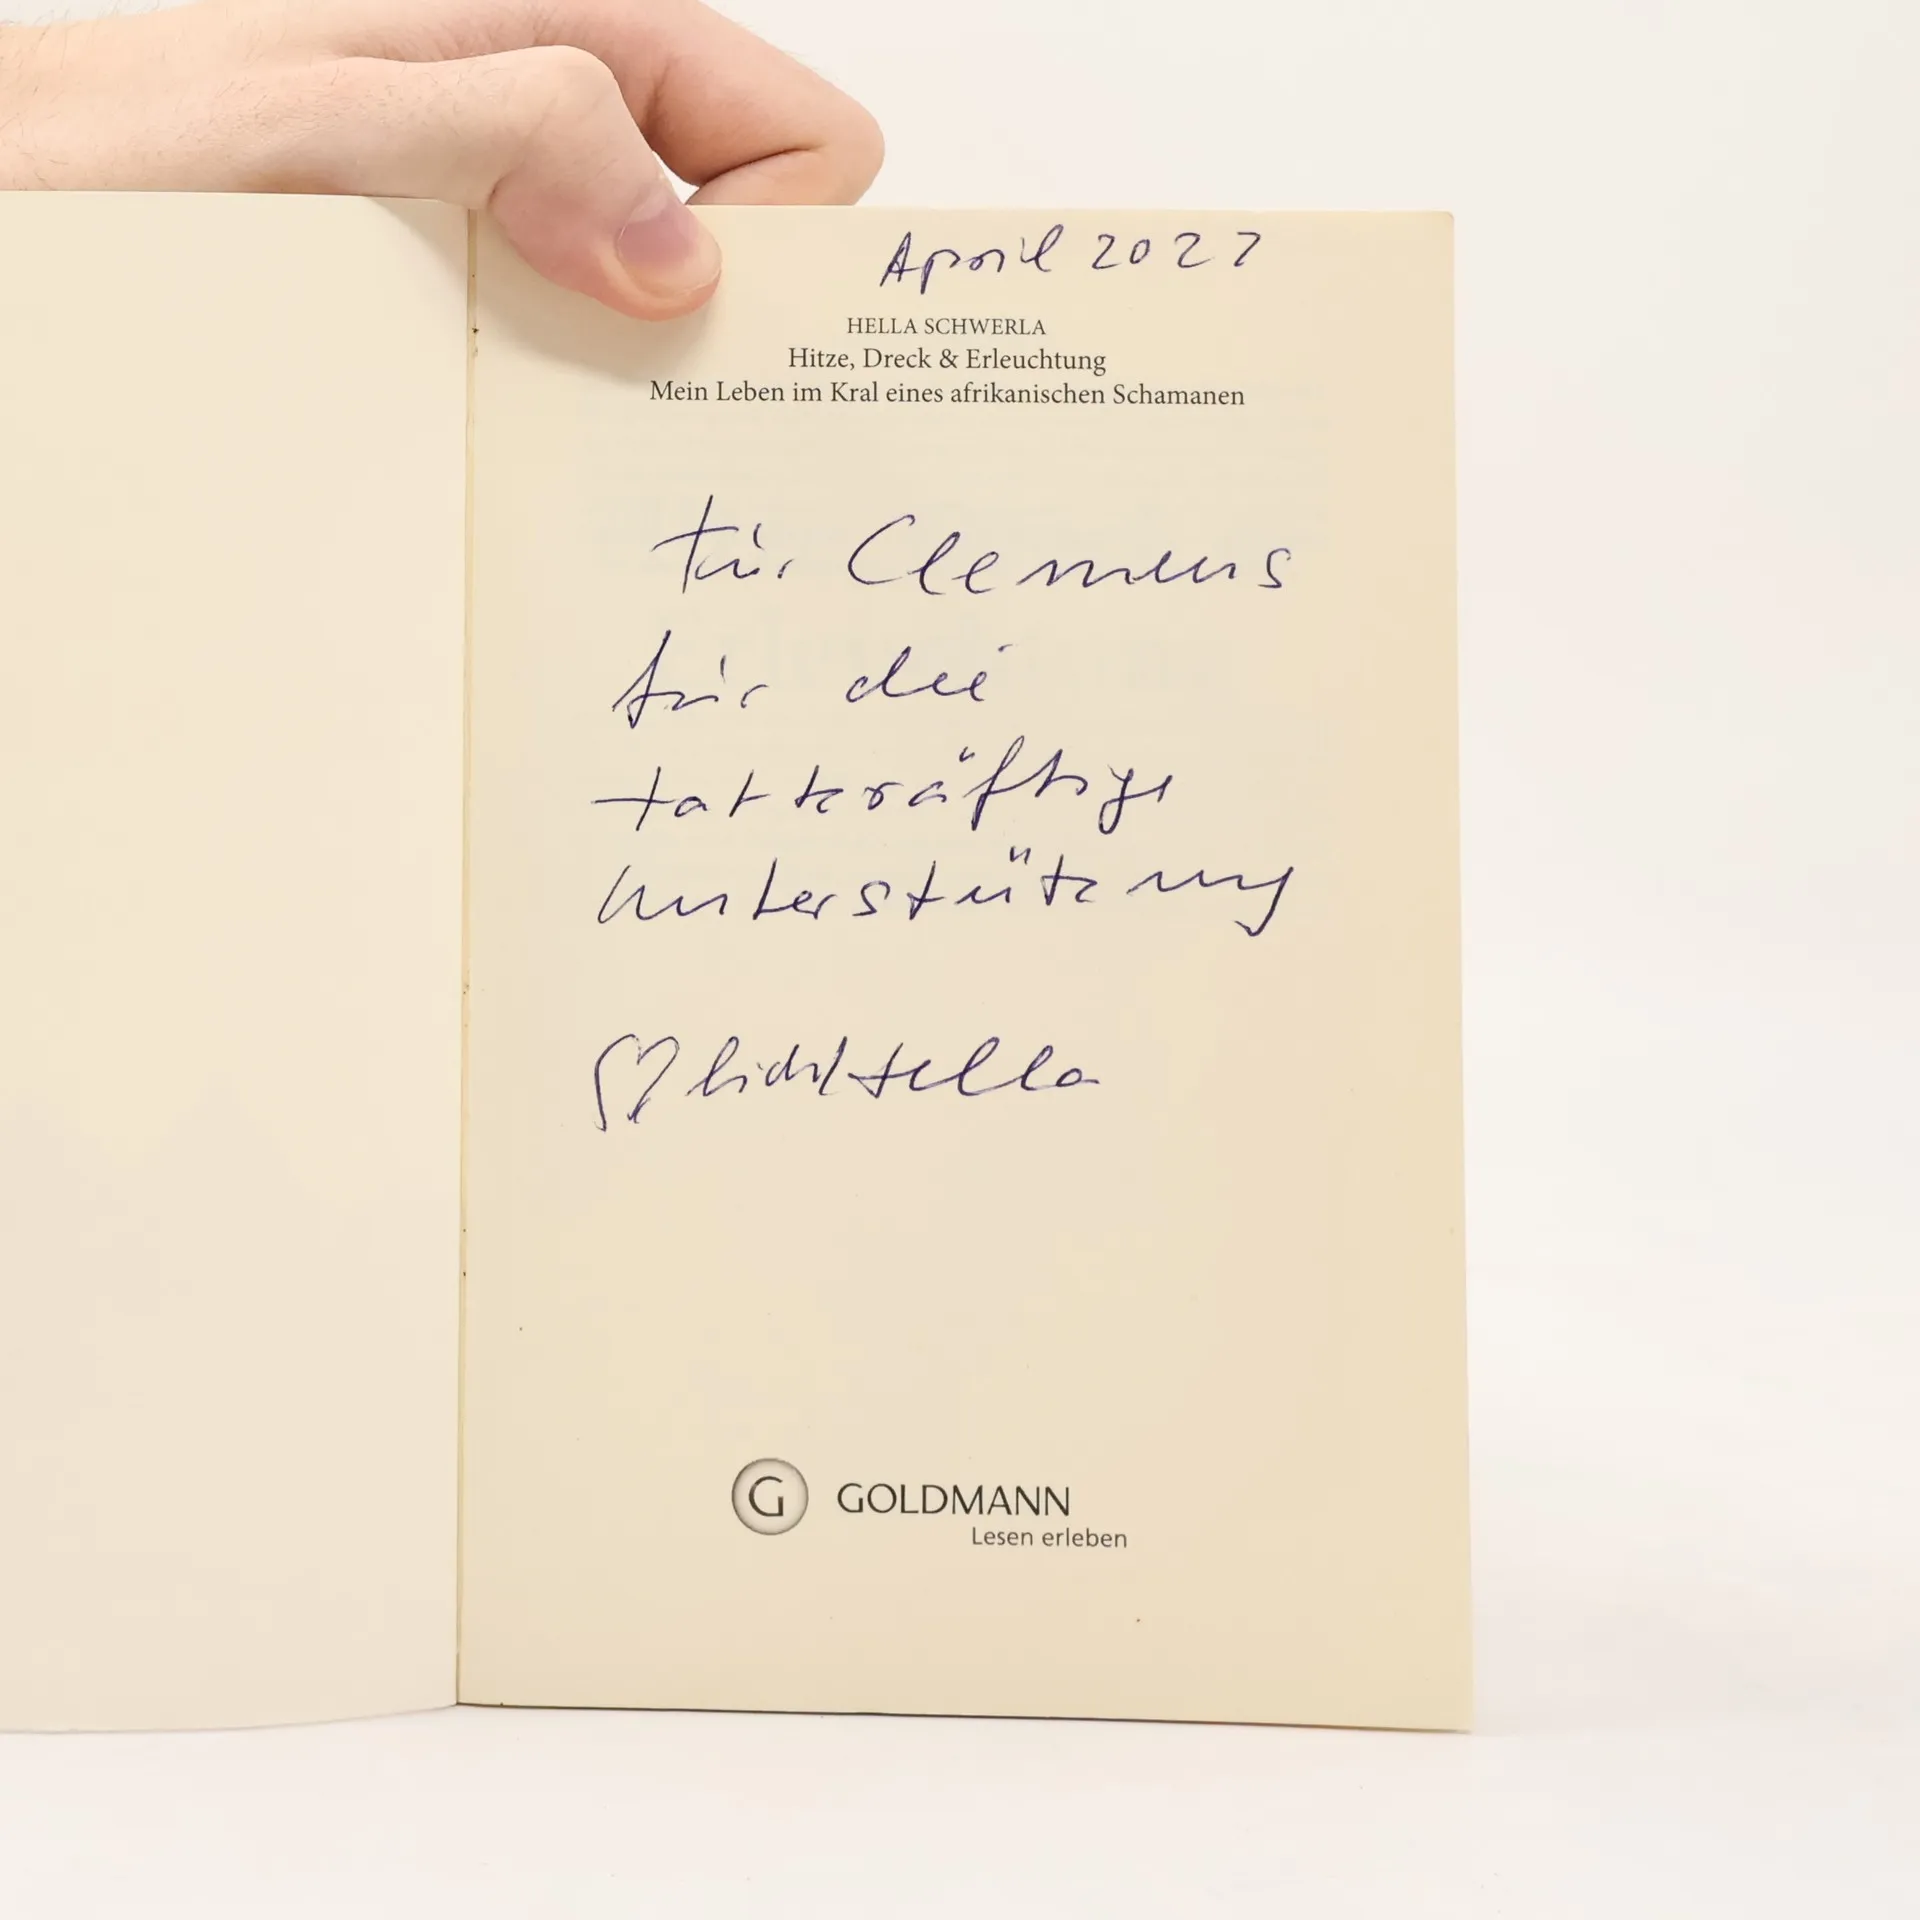 April 2022
HELLA SCHWERLA
Hitze, Dreck & Erleuchtung
Mein Leben im Kral eines afrikanischen Schamanen
für Clemens
für die
tatkräftige
Unterstützung
♡lichst Hella
G GOLDMANN
Lesen erleben